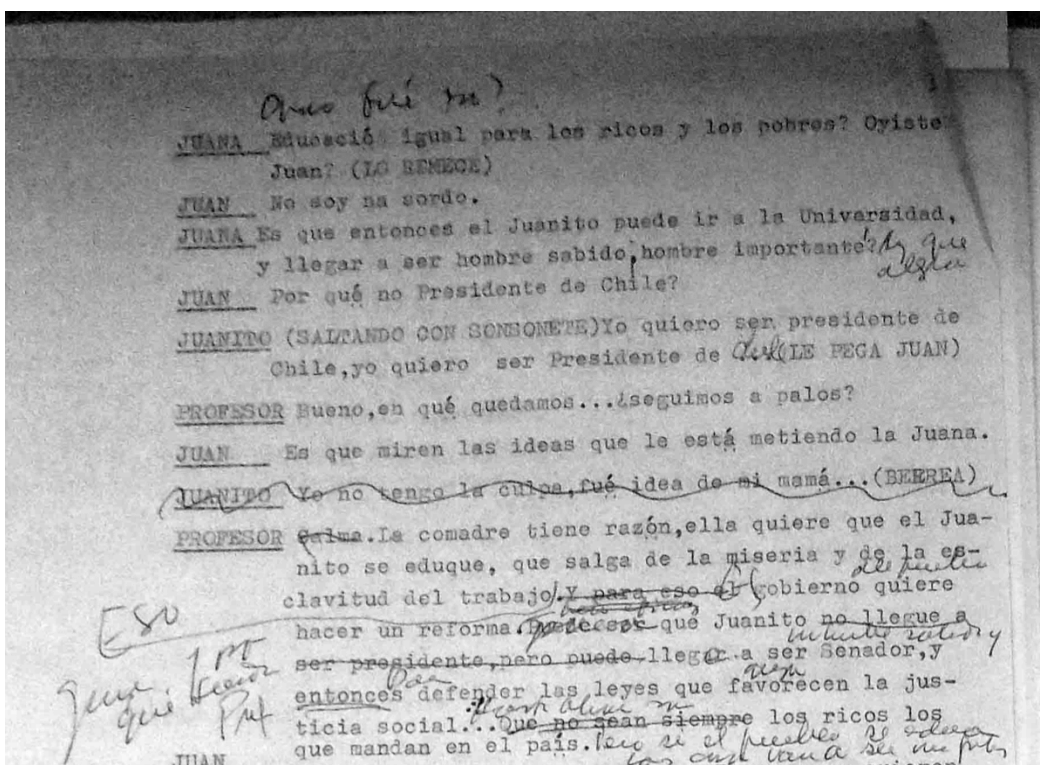 fué
JUANA Educació igual para los ricos y los pobres? Oyiste
Juan? (LO REMECE)
JUAN No soy na sordo.
JUANA Es que entonces el Juanito puede ir a la Universidad,
y llegar a ser hombre sabido,hombre importante? Ay que
alegria
JUAN Por qué no Presidente de Chile?
JUANITO (SALTANDO CON SONSONETE)Yo quiero ser presidente de
Chile,yo quiero ser Presidente de Chile(LE PEGA JUAN)
PROFESOR Bueno,en qué quedamos...¿seguimos a palos?
JUAN Es que miren las ideas que le está metiendo la Juana.
JUANITO Yo no tengo la culpa,fué idea de mi mamá...(BERREA)
PROFESOR Calma.La comadre tiene razón,ella quiere que el Jua-
nito se eduque, que salga de la miseria y de la es-
clavitud del trabajo.Y para eso el gobierno quiere
ESO
hacer un reforma.Puede ser que Juanito no llegue a
ser presidente,pero puede llegar a ser Senador,y
entonces defender las leyes que favorecen la jus-
ticia social...Que no sean siempre los ricos los
que mandan en el país. Pero si el pueblo se educa
JUAN